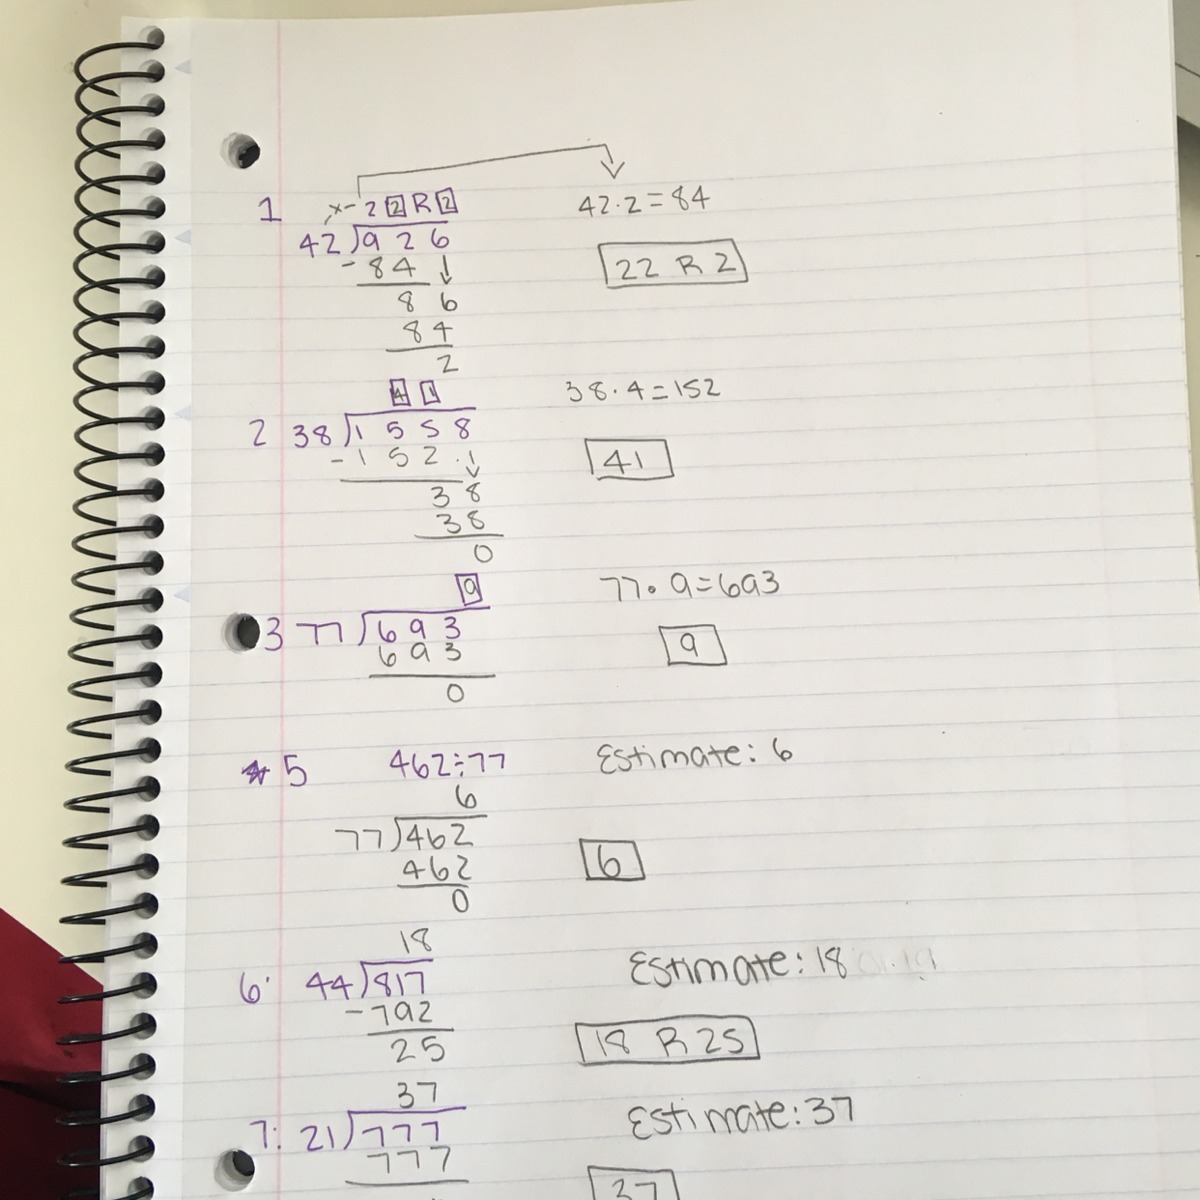 1 x- 2 2 R 2 42·2=84
42)9 2 6
-84 ↓ 22 R 2
8 6
84
2
4 1 38·4=152
2 38)1 5 5 8
-1 5 2 ↓ 41
3 8
38
0
9 77·9=693
3 77)6 9 3
6 9 3 9
0
*5 462÷77 Estimate: 6
6
77)462
462 6
0
18 Estimate: 18
6· 44)817
-792 18 R 25
25
37 Estimate: 37
7: 21)777
777 37